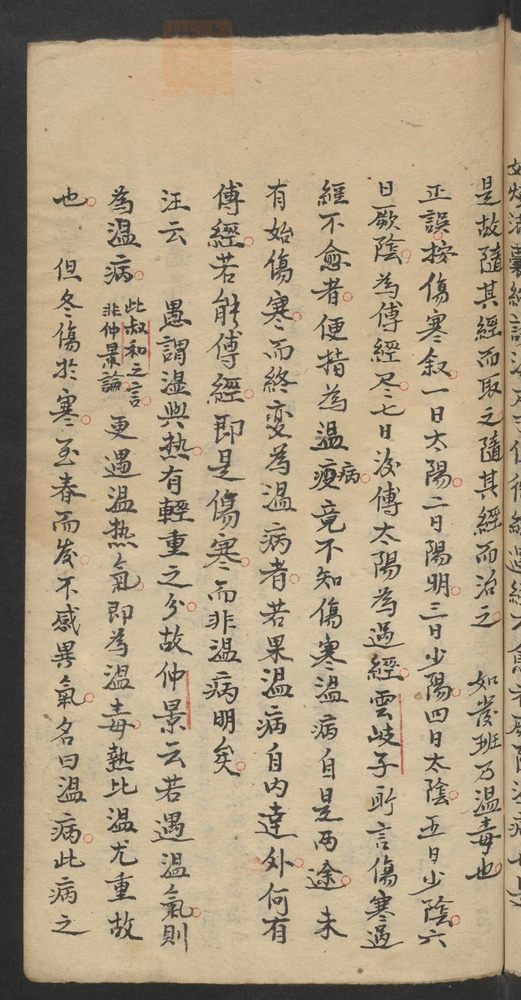 是故隨其經而取之隨其經而治之　如發班乃溫毒也
正誤按傷寒叙一日太陽二日陽明三日少陽四日太陰五日少陰六
日厥陰為傳經尽七日後傳太陽為過經雲岐子所言傷寒過
經不愈者便指為溫瘦病竟不知傷寒溫病自是两途未
有始傷寒而終变為溫病者若果溫病自內達外何有
傳經若能傳經即是傷寒而非溫病明矣
汪云　愚謂溫與热有輕重之分故仲景云若遇溫氣則
為溫病此叔和之言非仲景論更遇溫热氣即為溫毒熱比溫尤重故
也　但冬傷於寒至春而发不感異氣名曰溫病此病之